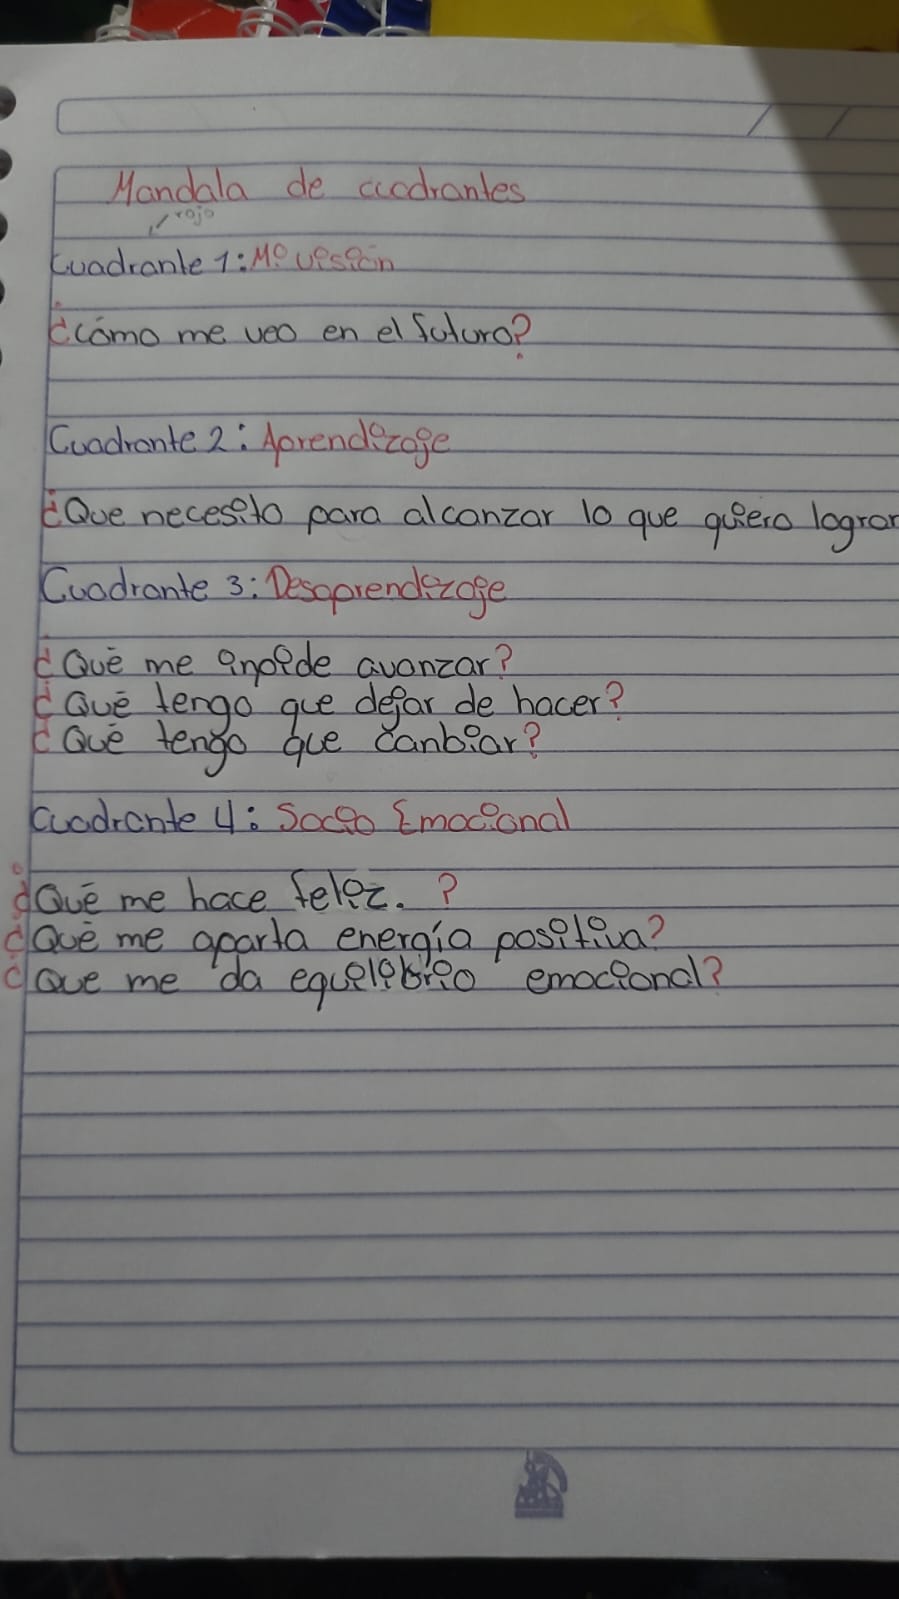 Mandala de cuadrantes
rojo
Cuadrante 1: Mi visión
¿Cómo me veo en el futuro?
Cuadrante 2: Aprendizaje
¿Que necesito para alcanzar lo que quiero lograr
Cuadrante 3: Desaprendizaje
¿Qué me inpide avanzar?
¿Qué tengo que dejar de hacer?
¿Qué tengo que canbiar?
Cuadrante 4: Socio Emocional
¿Qué me hace feliz. ?
¿Qué me aparta energía positiva?
¿Que me da equilibrio emocional?